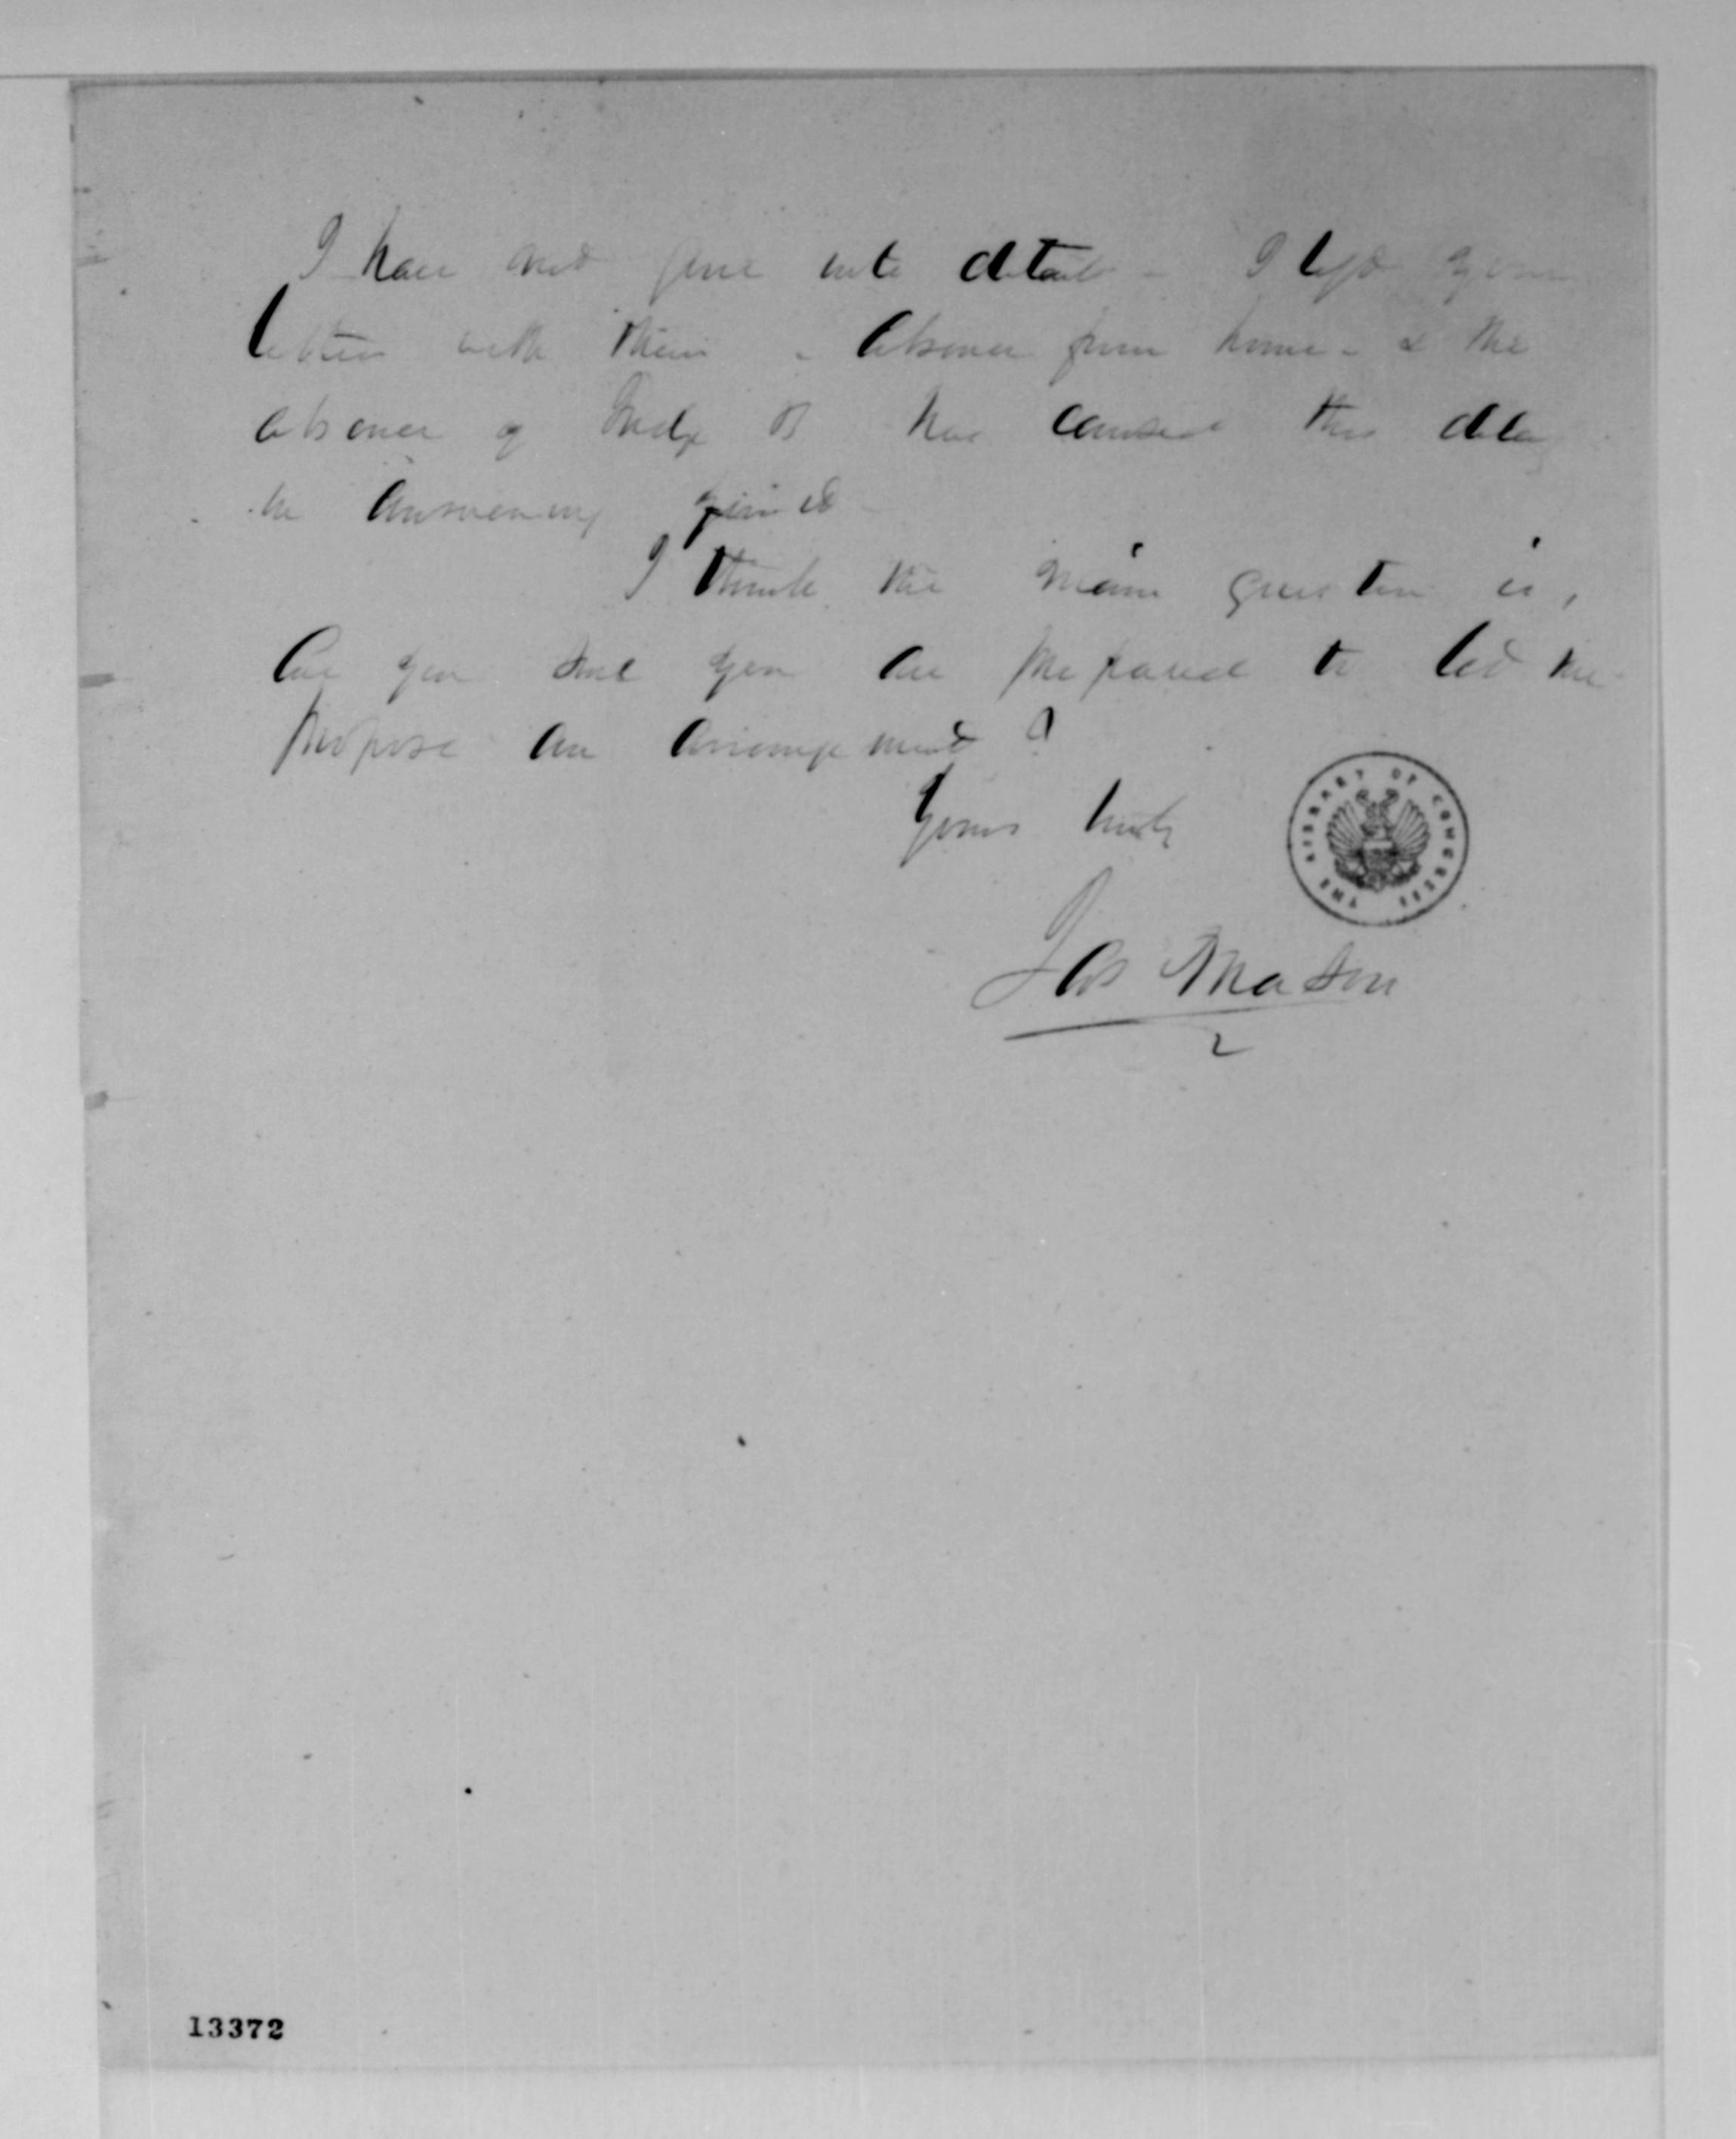 I have not gone into details - I left your
letter with them - Absence from home - & the
absence of Judge B has caused this delay
in answering yours -
I think the main question is,
Are you sure you are prepared to let me
propose an arrangement?
Yours truly
Jas Mason
THE LIBRARY OF CONGRESS
13372